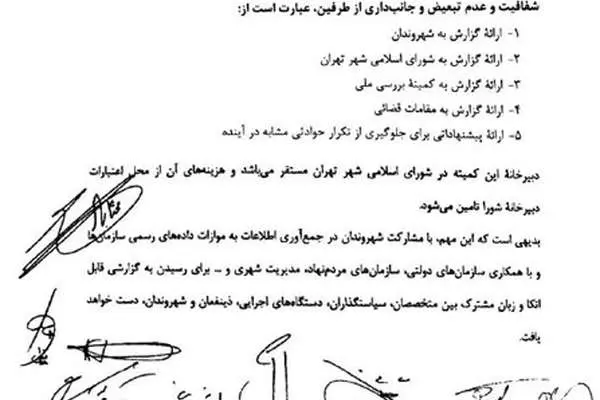 شفافیت و عدم تبعیض و جانب‌داری از طرفین، عبارت است از:
۱- ارائهٔ گزارش به شهروندان
۲- ارائهٔ گزارش به شورای اسلامی شهر تهران
۳- ارائهٔ گزارش به کمیتهٔ بررسی ملی
۴- ارائهٔ گزارش به مقامات قضائی
۵- ارائهٔ پیشنهاداتی برای جلوگیری از تکرار حوادثی مشابه در آینده
دبیرخانهٔ این کمیته در شورای اسلامی شهر تهران مستقر می‌باشد و هزینه‌های آن از محل اعتبارات
دبیرخانهٔ شورا تامین می‌شود.
بدیهی است که این مهم، با مشارکت شهروندان در جمع‌آوری اطلاعات به موازات داده‌های رسمی سازمان‌ها
و با همکاری سازمان‌های دولتی، سازمان‌های مردم‌نهاد، مدیریت شهری و ... برای رسیدن به گزارشی قابل
اتکا و زبان مشترک بین متخصصان، سیاستگذاران، دستگاه‌های اجرایی، ذینفعان و شهروندان، دست خواهد
یافت.